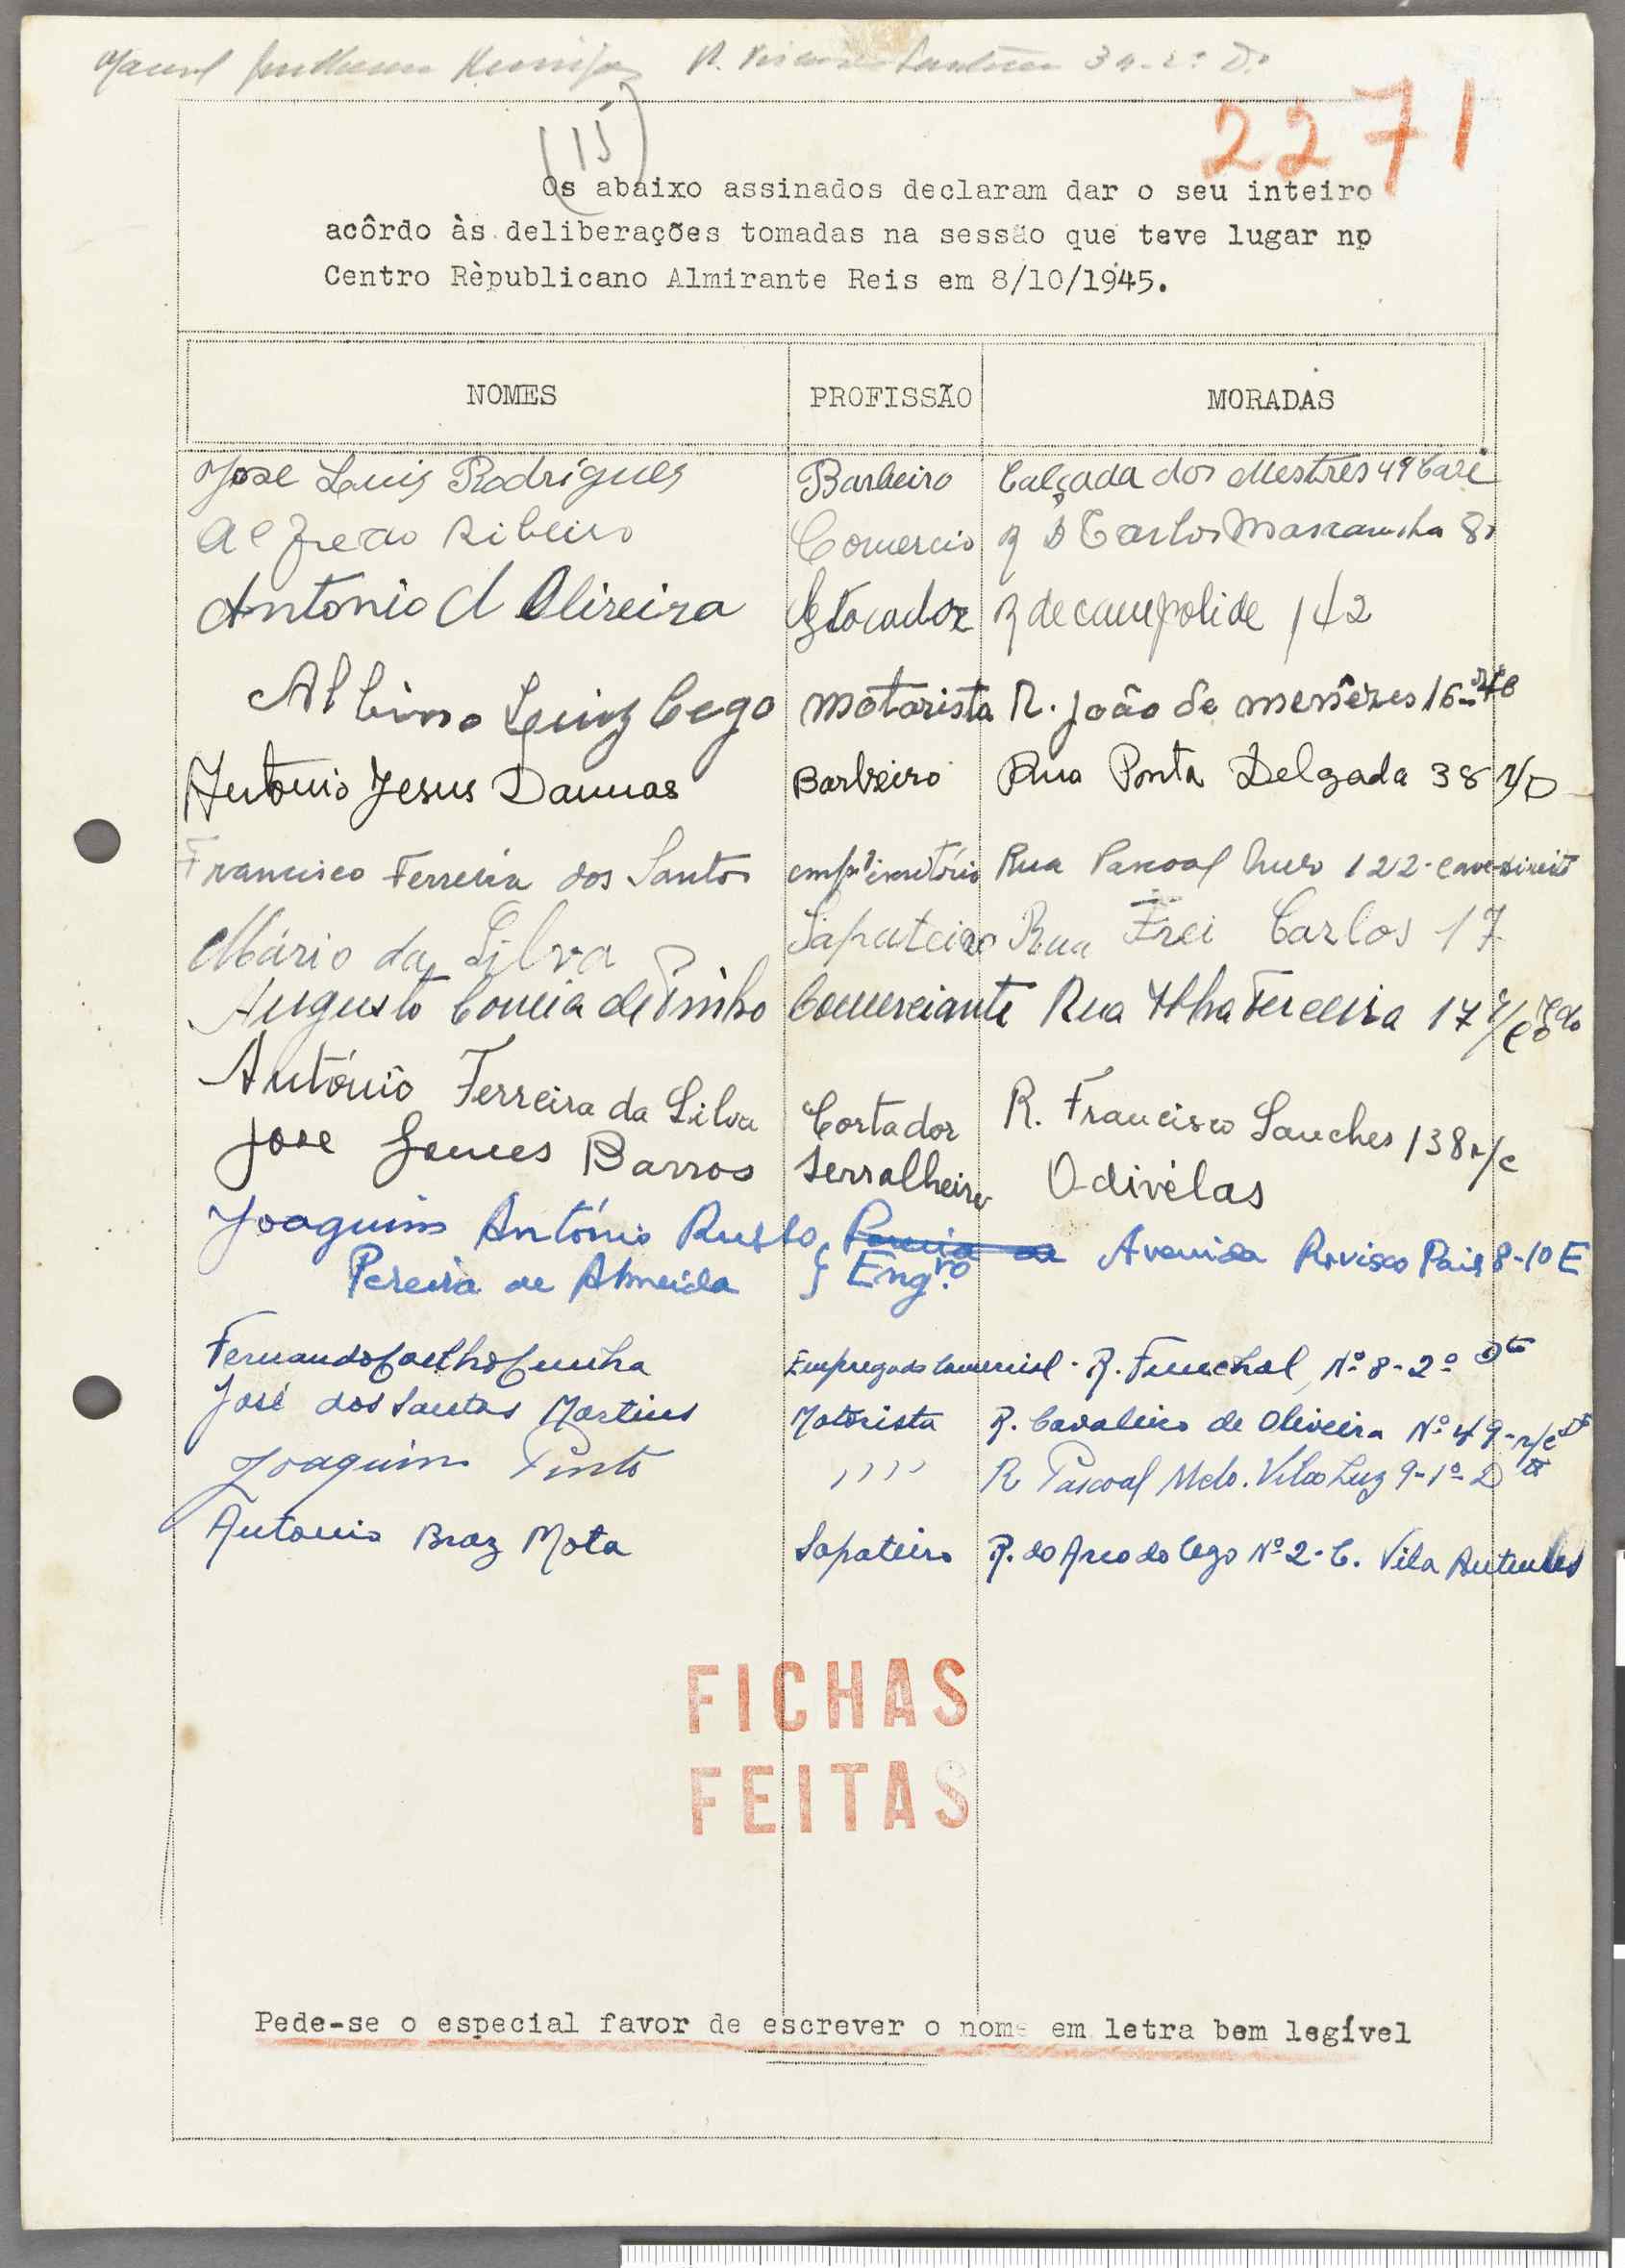 Manuel 34-2º D.º
(15)
2271
Os abaixo assinados declaram dar o seu inteiro
acôrdo às deliberações tomadas na sessão que teve lugar no
Centro Rèpublicano Almirante Reis em 8/10/1945.
NOMES PROFISSÃO MORADAS
Jose Luis Rodrigues Barbeiro Calçada dos Mestres 49
Alfredo Ribeiro Comercio R D Carlos Mascarenhas
Antonio d Oliveira Estocador R de campolide 142
Albino Luiz Cego motorista R. João de menêzes 16
Antonio Jesus Damas Barbeiro Rua Ponta Delgada 38
Francisco Ferreira dos Santos Rua Pascoal 122-cave-direito
Mário da Silva Sapateiro Rua Frei Carlos 17
Augusto Correia de Pinho Comerciante Rua Ilha Terceira 17
António Ferreira da Silva Cortador R. Francisco Sanches 138 r/c
Jose Gomes Barros Serralheiro Odivélas
Joaquim António Russo Avenida Rovisco Pais 8-10 E
Pereira de Almeida } Engrº.
Fernando Coelho Cunha Empregado Comercial - R. Funchal, Nº 8-2º Dto
José dos Santos Martins Motorista R. Cavaleiro de Oliveira Nº 49-r/c Dt
Joaquim Pinto ,,,, R Pascoal Melo. Vila Luz 9-1º-Dt
Antonio Braz Mota Sapateiro R. do Arco do Cego Nº 2-C. Vila Antunes
FICHAS
FEITAS
Pede-se o especial favor de escrever o nome em letra bem legível